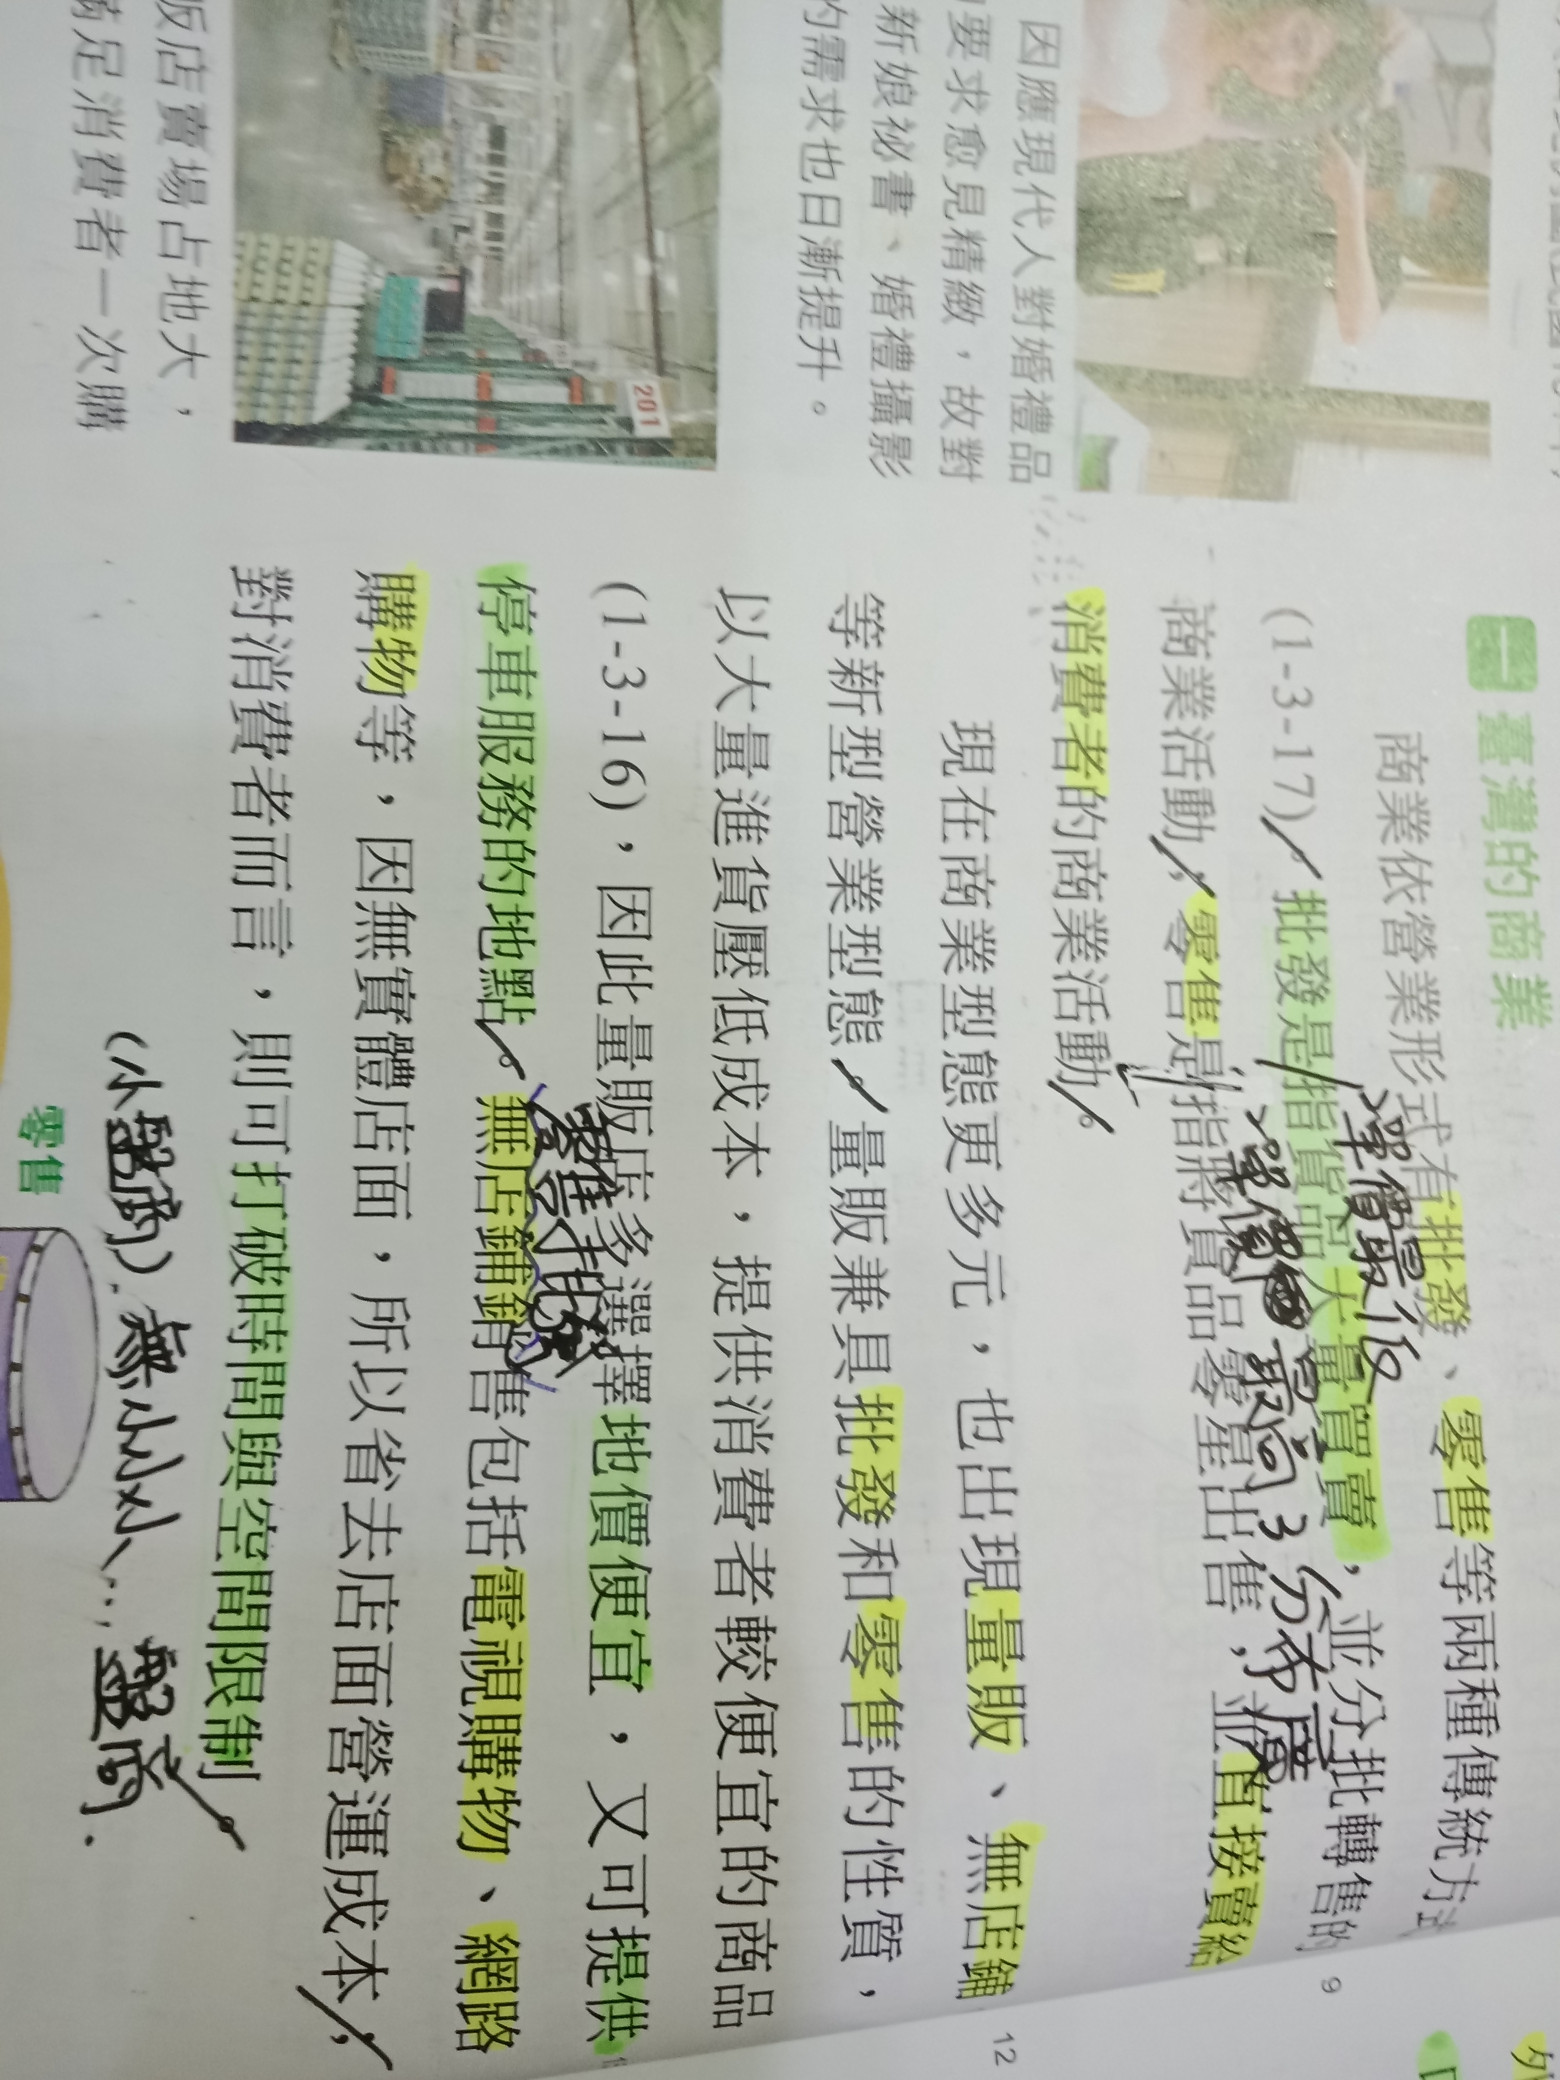 因應現代人對婚禮品
要求愈見精緻，故對
新娘祕書、婚禮攝影
的需求也日漸提升。
201
販店賣場占地大，
滿足消費者一次購
一 臺灣的商業
商業依營業形式有批發、零售等兩種傳統方式
(1-3-17)。批發是指貨品大量買賣，並分批轉售的
單價最低
商業活動；零售是指將貨品零星出售，並直接賣給
單價最高 分布廣
消費者的商業活動。
現在商業型態更多元，也出現量販、無店鋪
等新型營業型態。量販兼具批發和零售的性質，
以大量進貨壓低成本，提供消費者較便宜的商品
(1-3-16)，因此量販店多選擇地價便宜，又可提供
停車服務的地點。無店鋪銷售包括電視購物、網路
購物等，因無實體店面，所以省去店面營運成本；
對消費者而言，則可打破時間與空間限制
(小盤商)
零售
9
12